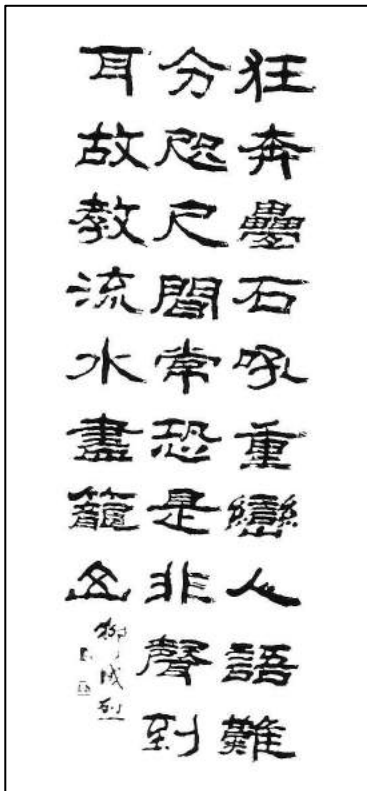 狂奔疊石吼重巒人語難
分咫尺間常恐是非聲到
耳故教流水盡籠山